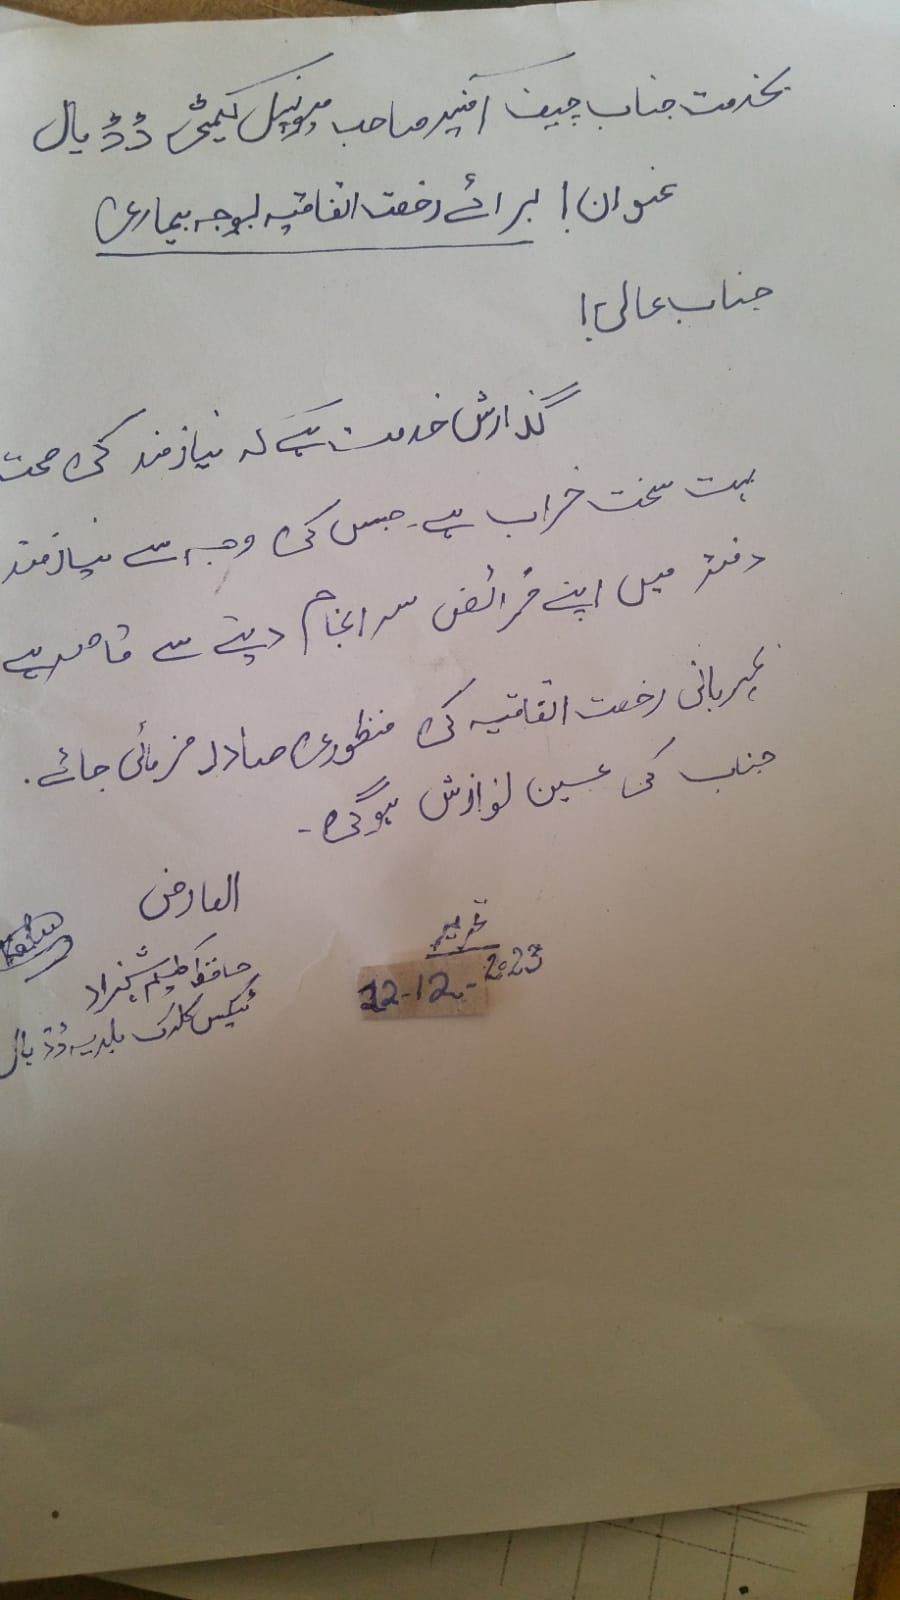 بخدمت جناب چیف آفیسر صاحب میونسپل کمیٹی ڈڈیال
عنوان! برائے رخصت اتفاقیہ بوجہ بیماری
جناب عالی!
گذارش خدمت ہے کہ نیازمند کی صحت
بہت سخت خراب ہے۔ جس کی وجہ سے نیازمند
دفتر میں اپنے فرائض سرانجام دینے سے قاصر ہے
مہربانی رخصت اتفاقیہ کی منظوری صادر فرمائی جائے۔
جناب کی عین نوازش ہوگی۔
العارض
تحریر
22-12-2023
حافظ شہزاد
ٹیکس کلرک بلدیہ ڈڈیال